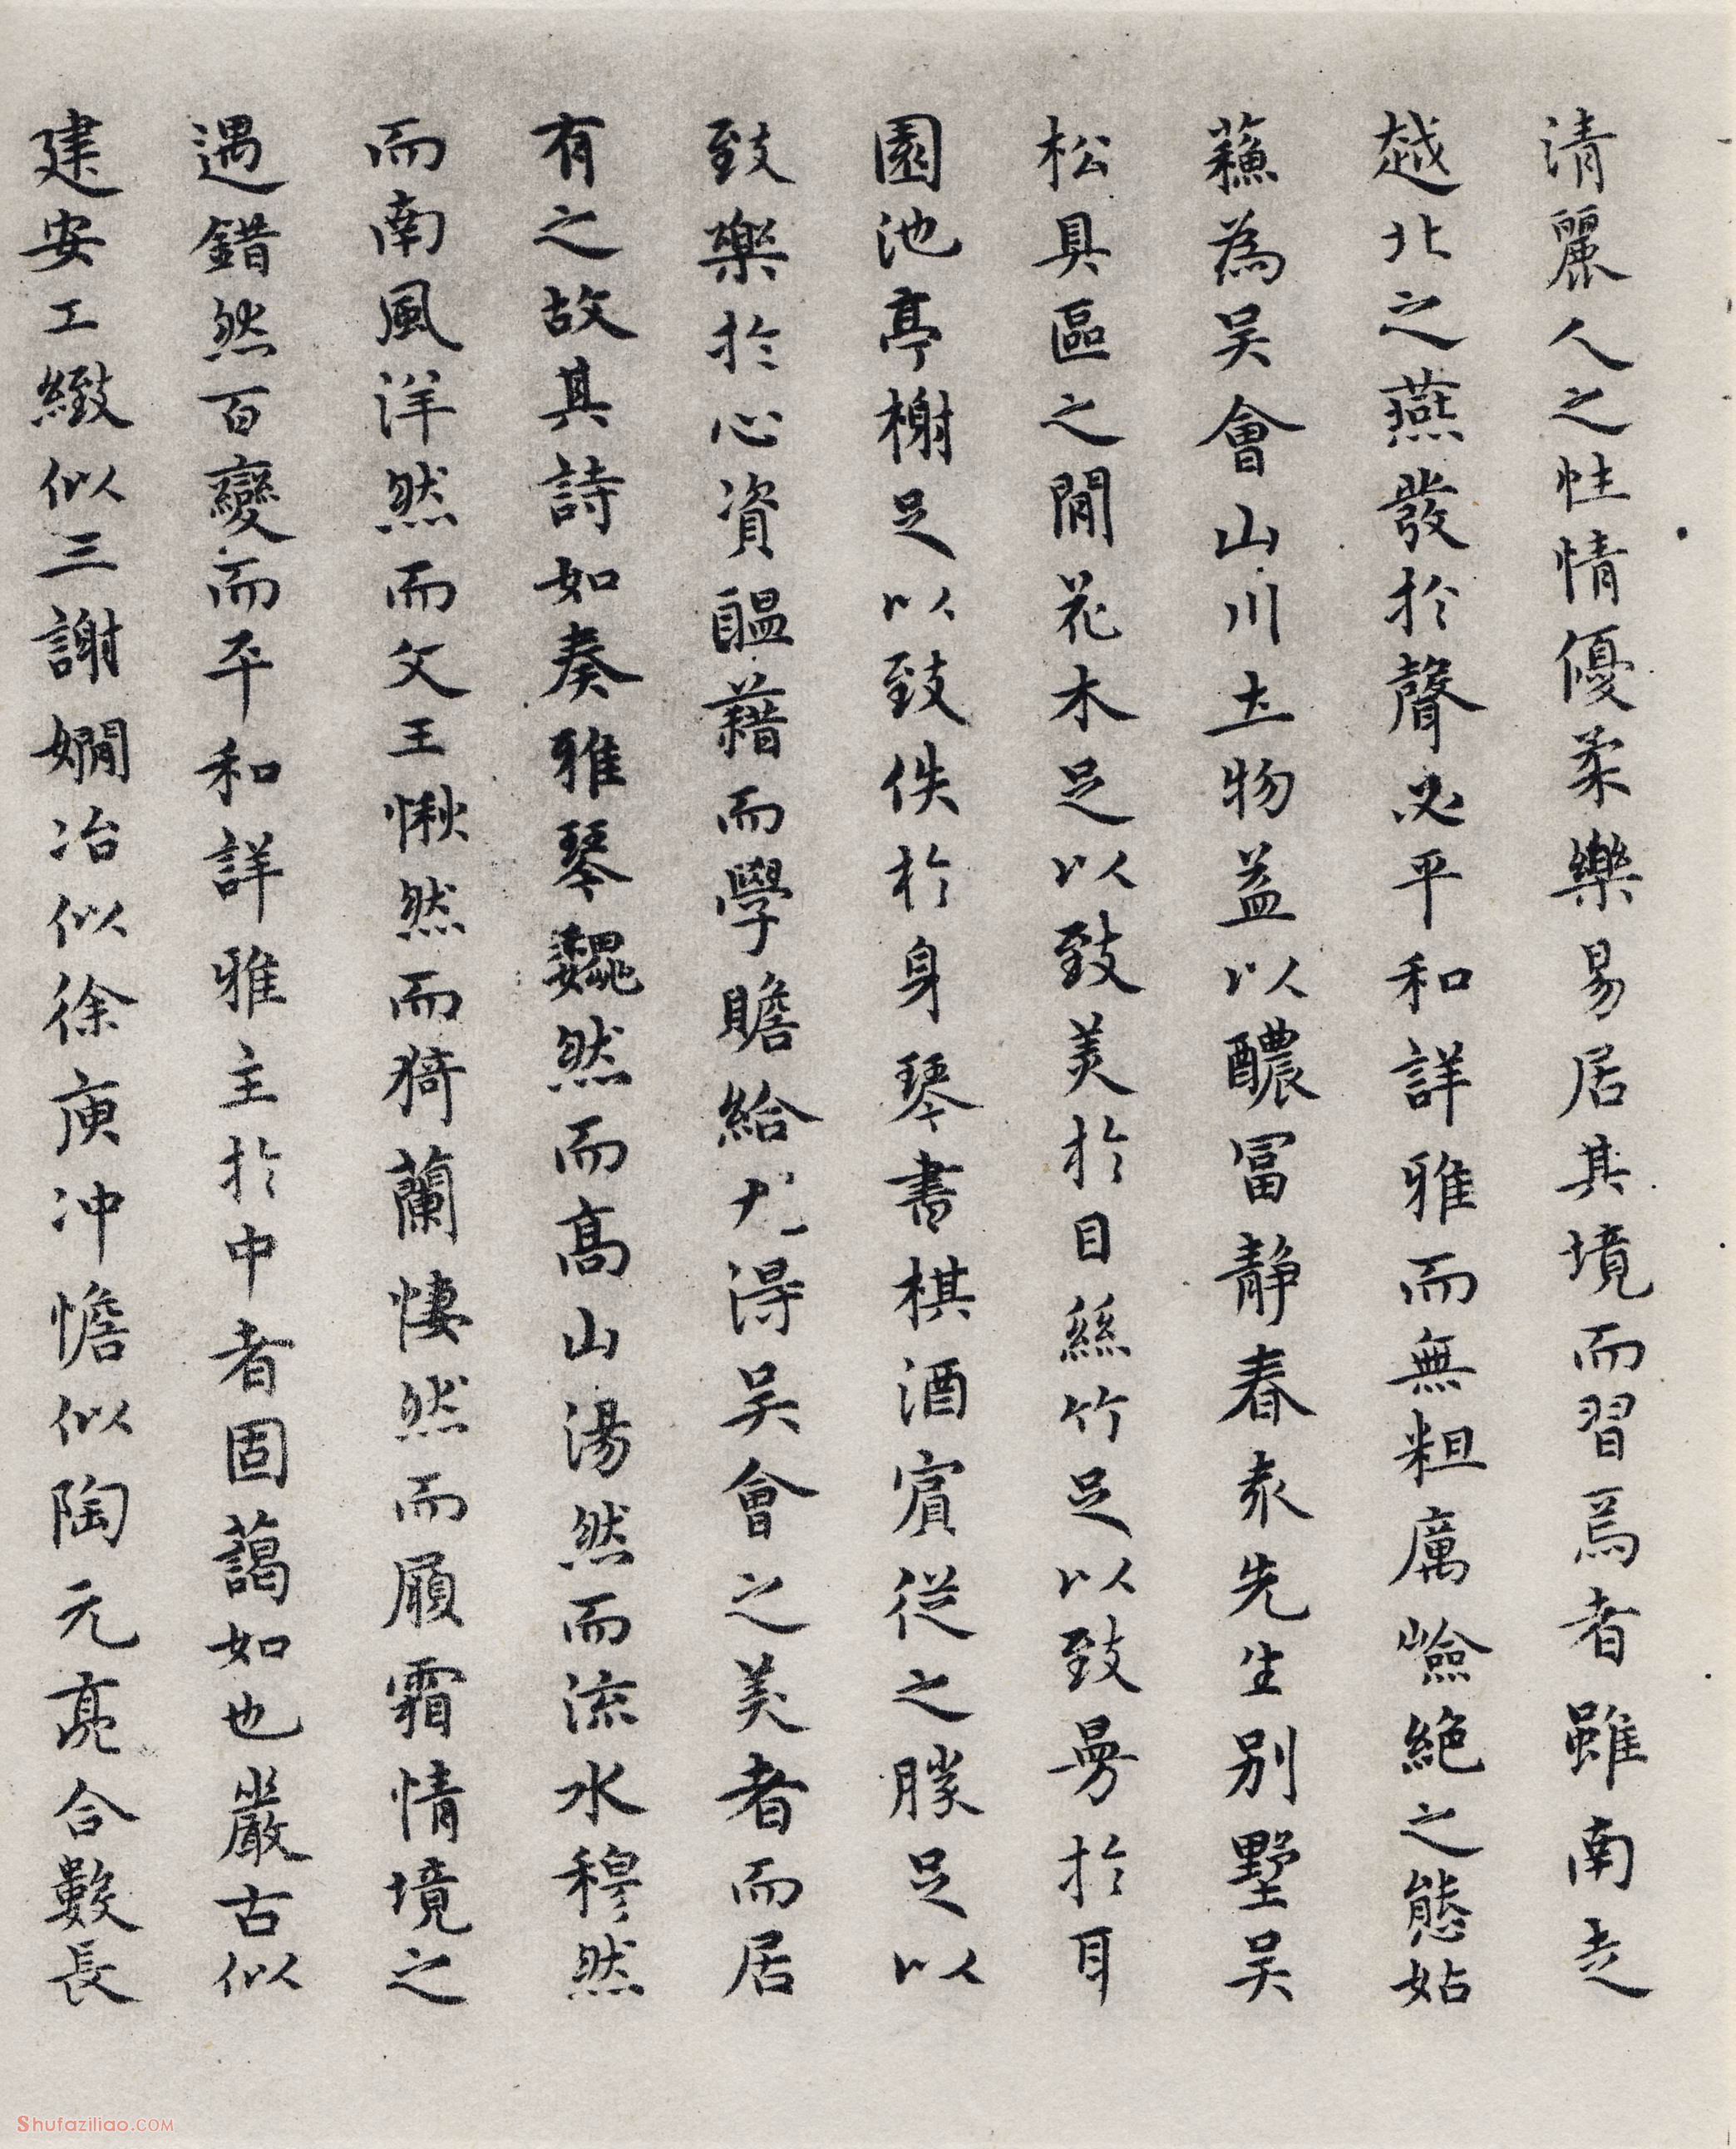 清麗人之性情優柔樂易居其境而習焉者雖南走
越北之燕發於聲必平和詳雅而無粗厲嶮絶之態姑
蘓為吴會山川土物益以醲冨静春袁先生别墅吴
松具區之間花木足以致美於目絲竹足以致曼於耳
園池亭榭足以致佚於身琴書棋酒賓從之勝足以
致樂於心資醖藉而學贍給尤得吴會之美者而居
有之故其詩如奏雅琴巍然而髙山湯然而流水穆然
而南風洋然而文王愀然而猗蘭悽然而履霜情境之
遇錯然百變而平和詳雅主於中者固藹如也嚴古似
建安工緻似三謝嫺冶似徐庾冲憺似陶元亮合數長
Shufaziliao.COM